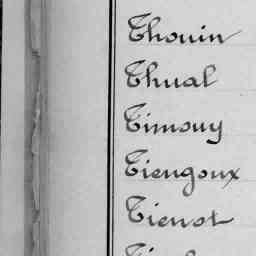 Thouin
Thual
Timouy
Tiengoux
Tienot